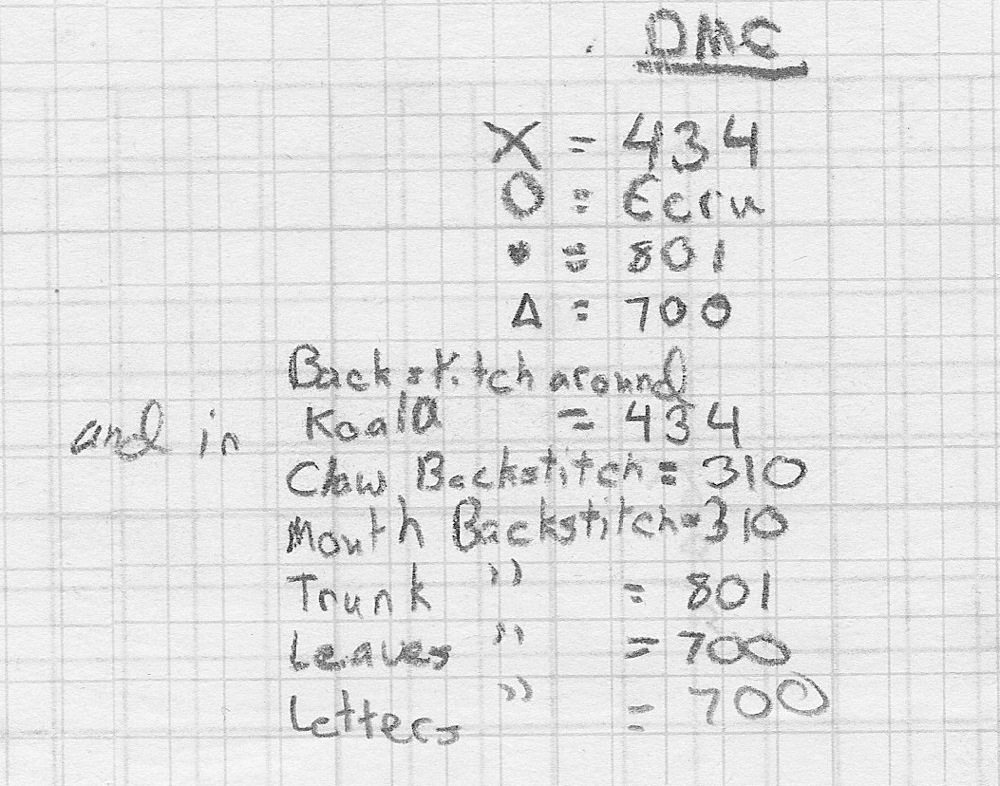 DMC
X = 434
O = Ecru
♥ = 801
Δ = 700
Backstitch around
and in Koala = 434
Claw Backstitch = 310
Mouth Backstitch = 310
Trunk " = 801
Leaves " = 700
Letters " = 700